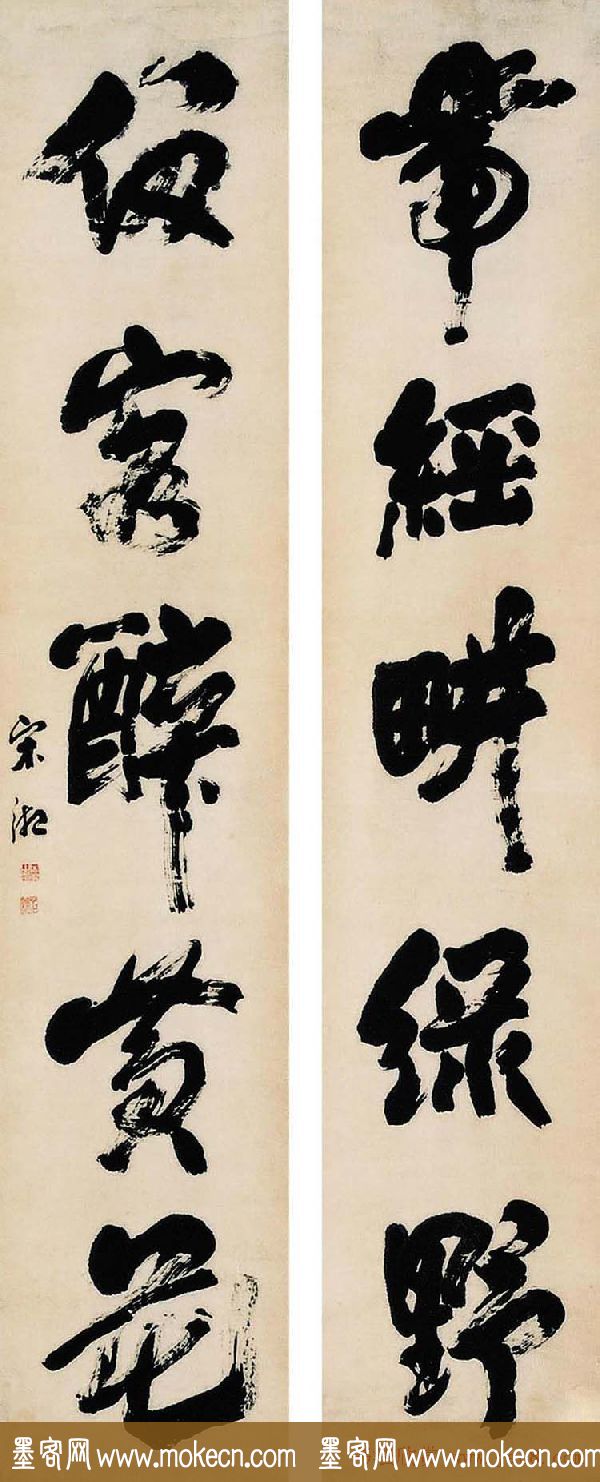 帶經畊綠野
客醉黃花
宋湘
墨客网 www.mokecn.com
墨客网 www.mokecn.com